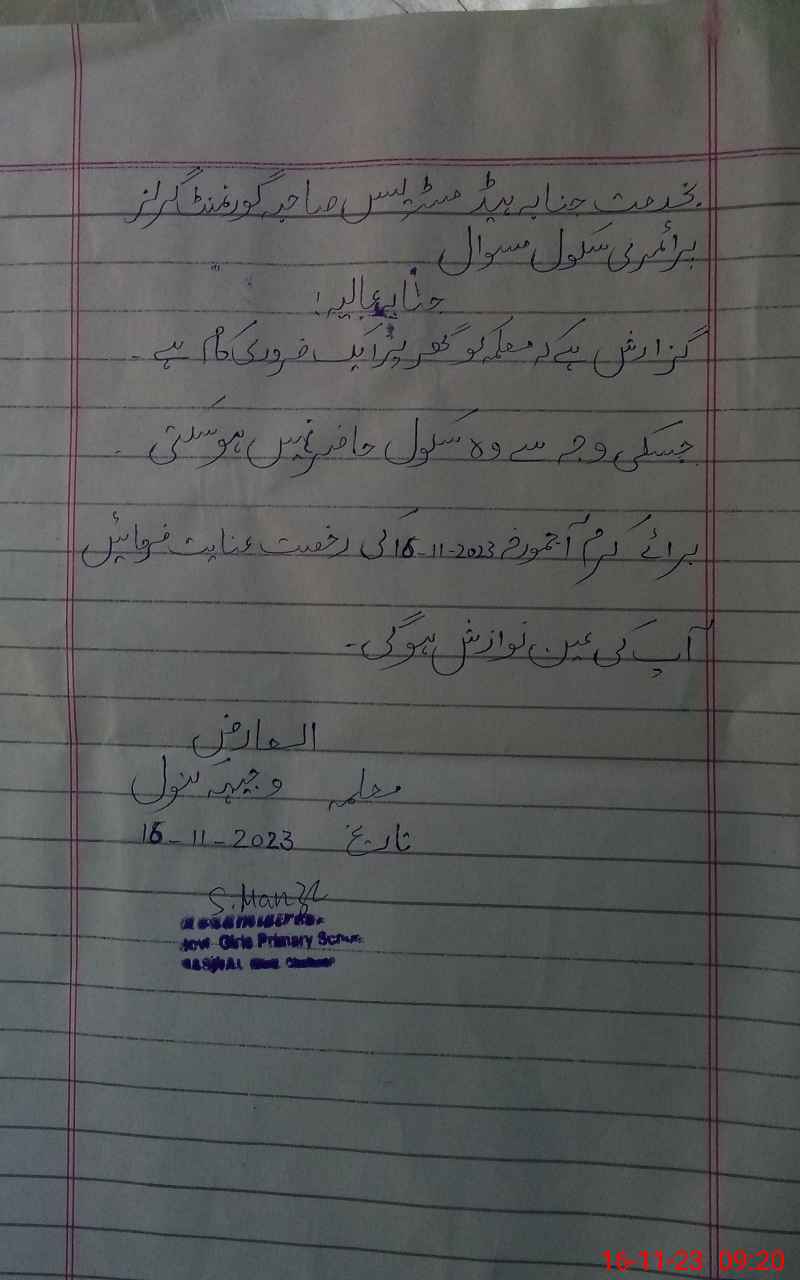 بخدمت جنابہ ہیڈ مسٹریس صاحبہ گورنمنٹ گرلز
پرائمری سکول مسوال
جنابہ عالیہ!
گزارش ہے کہ معلمہ کو گھر پر ایک ضروری کام ہے۔
جسکی وجہ سے وہ سکول حاضر نہیں ہو سکتی۔
برائے کرم آج مورخہ 16-11-2023 کی رخصت عنایت فرمائیں
آپ کی عین نوازش ہوگی۔
العارض
معلمہ وجیہہ کنول
تاریخ 16-11-2023
Govt Girls Primary School
16-11-23 09:20